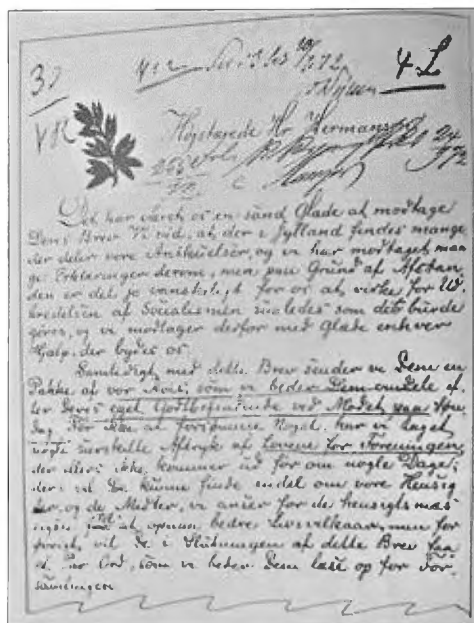 4 L
Højstærede Hr. Hermansen
Det har været os en sand Glæde at modtage
Deres Brev. Vi vid, at der i Jylland findes mange
der deler vore Anskuelser, og vi har modtaget man
ge Erklæringer derom, men paa Grund af Afstan
den er det jo vanskeligt for os at virke for Ud
bredelsen af Socialismen saaledes som det burde
gøres, og vi modtager derfor med Glæde enhver
Hjælp, der bydes os.
Samtidigt med dette Brev sender vi Dem en
Pakke af vor Avis, som vi beder Dem uddele ef
ter Deres eget Godtbefindende ved Mødet paa Søn
dag. For ikke at forsømme Noget, har vi taget
nogle særskilte Aftryk af Lovene for Foreningen,
der ellers ikke kommer ud før om nogle Dage;
der vil De kunne finde endel om vore Hensig
ter, og de Midler, vi anser for de hensigtsmæs
sigste til at opnaa bedre Livsvilkaar, men for
øvrigt vil De i Slutningen af dette Brev faa
et Par Ord, som vi beder Dem læse op for For
samlingen.